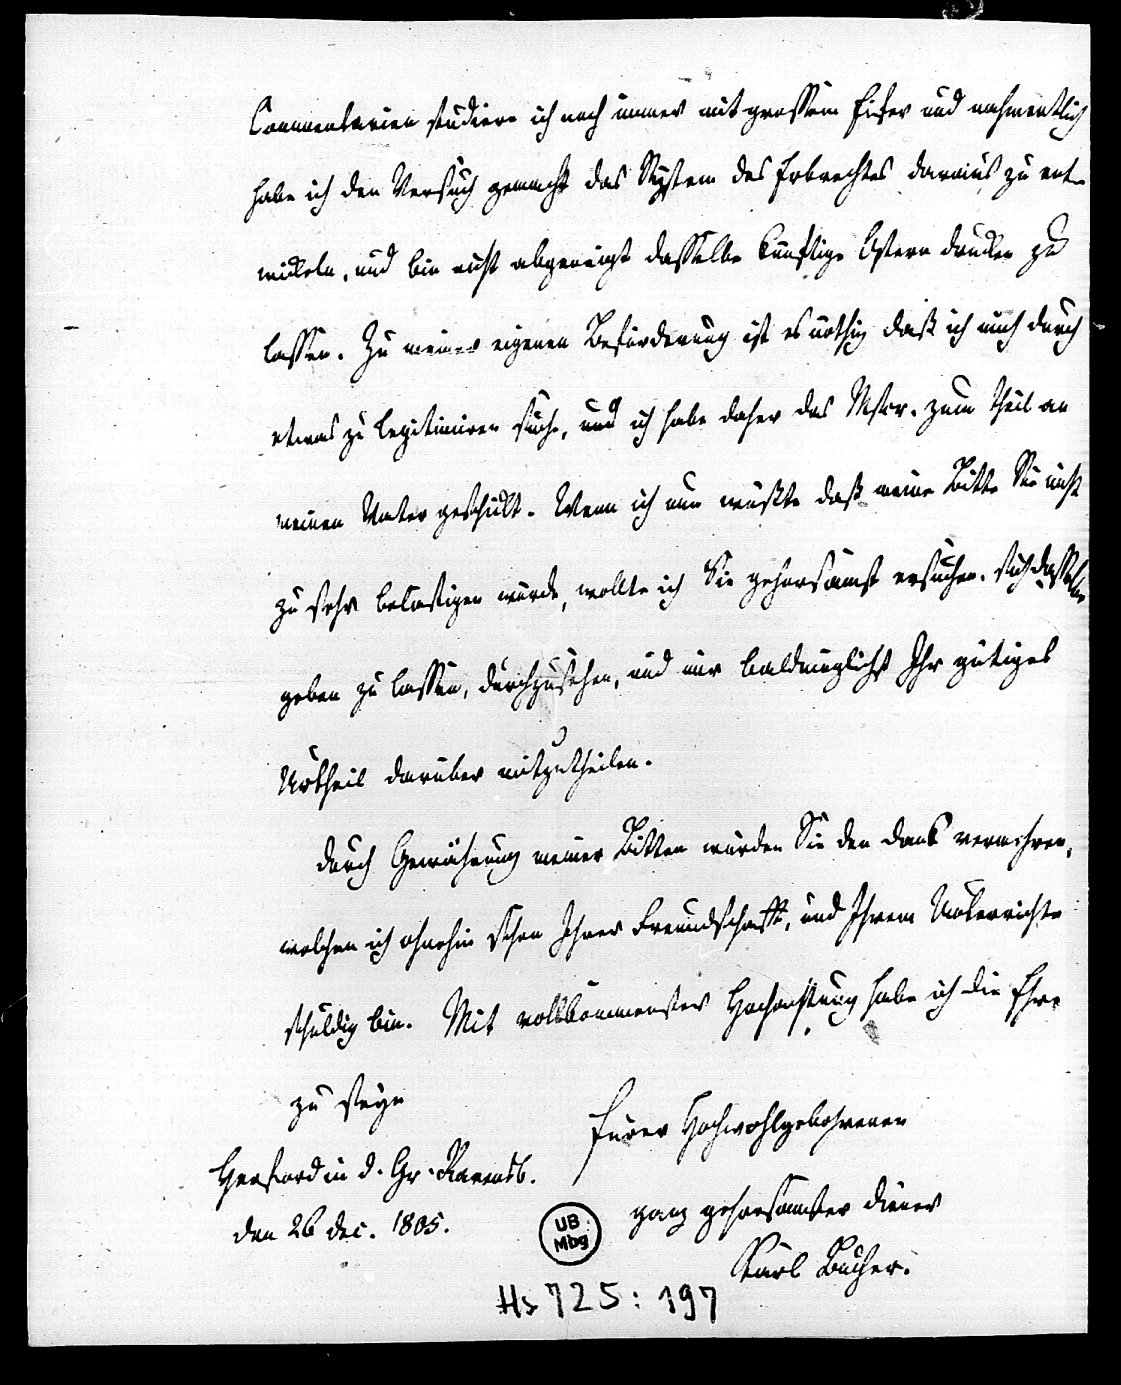 Commentarien studiere ich noch immer mit grossem Eifer und nahmentlich
habe ich den Versuch gemacht das System des Erbrechtes daraus zu ent-
wickeln, und bin nicht abgeneigt dasselbe künftige Ostern drucken zu
lassen. Zu meiner eigenen Beförderung ist es nöthig daß ich mich durch
etwas zu legitimiren suche, und ich habe daher das Mscr. zum Theil an
meinen Vater geschickt. Wenn ich nun wüßte daß meine Bitte Sie nicht
zu sehr belästigen würde, wollte ich Sie gehorsamst ersuchen, sich dasselbe
geben zu lassen, durchzusehen, und mir baldmöglichst Ihr gütiges
Urtheil darüber mitzutheilen.
Durch Gewährung meiner Bitten würden Sie den Dank vermehren,
welchen ich ohnehin schon Ihrer Freundschaft, und Ihrem Unterrichte
schuldig bin. Mit vollkommenster Hochachtung habe ich die Ehre
zu seyn
Eurer Hochwohlgebohrenen
Herford in d. Gr. Ravensb.
den 26 Dec. 1805.
ganz gehorsamster Diener
Karl Bucher.
UB
Mbg
Hs 725: 197